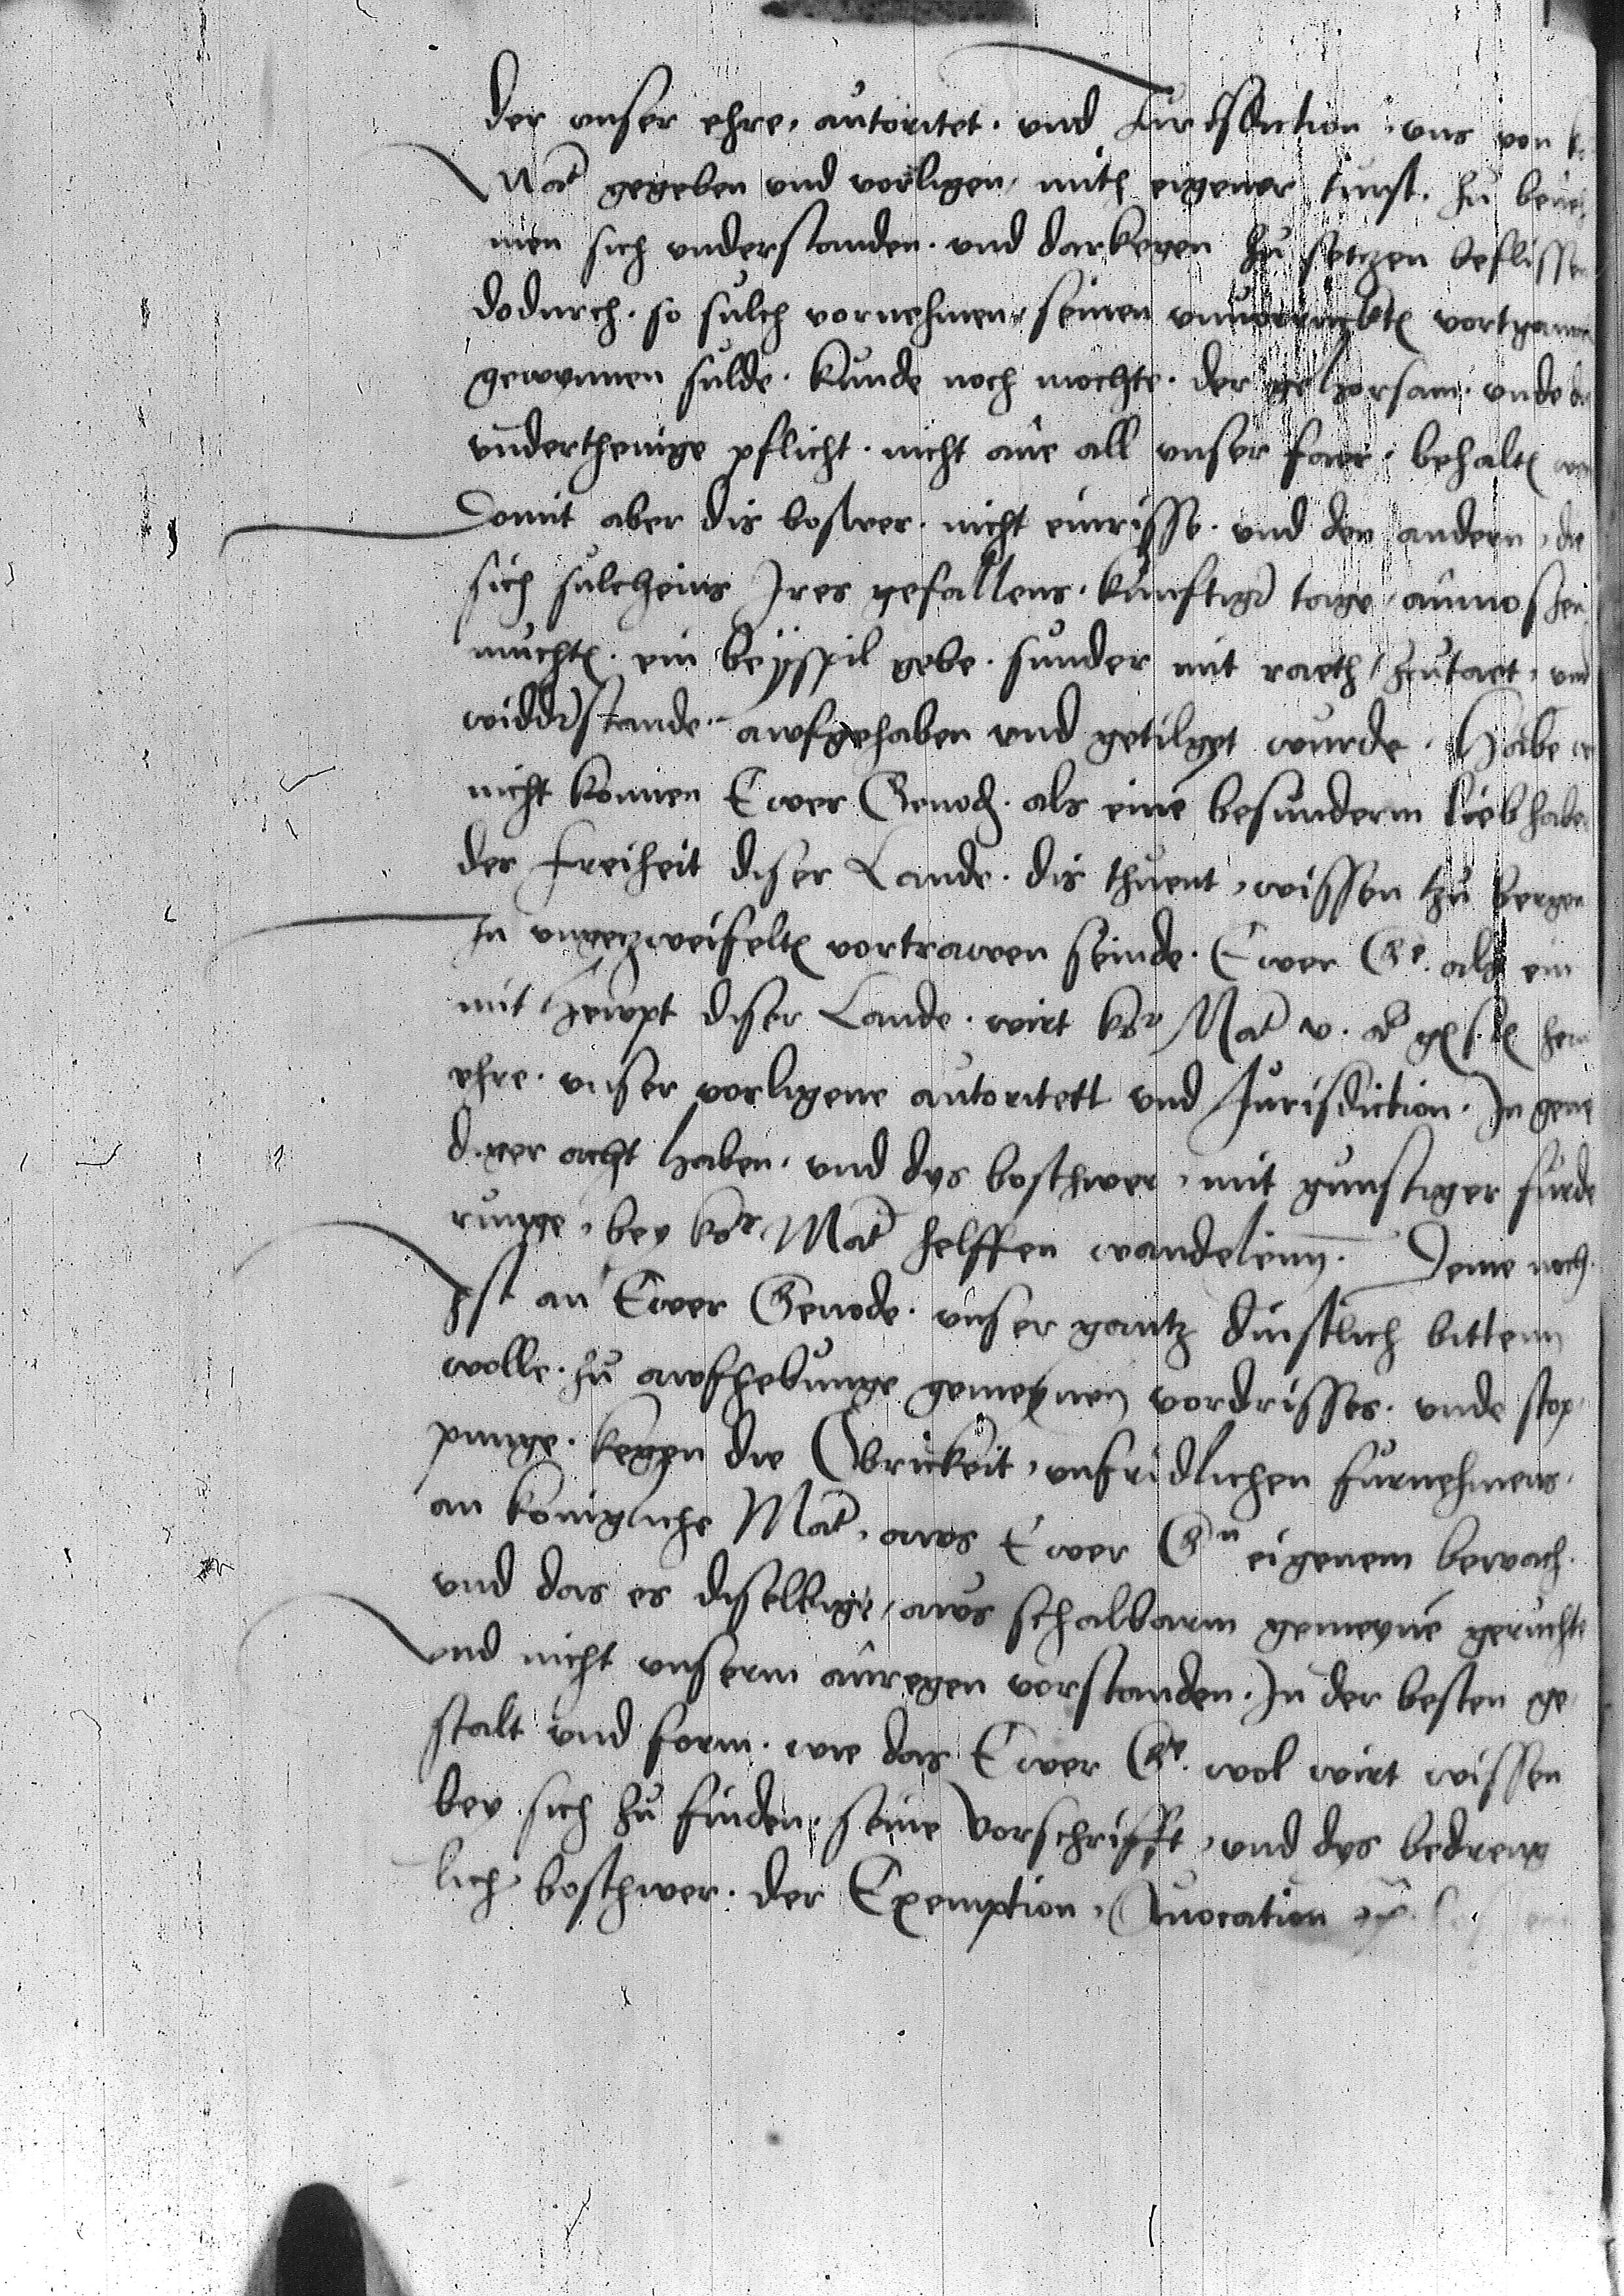 der vnser ehre, autoritet. vnd Jurisdiction, vns von
Mat gegeben vnd vorligen, mith eigener turst. zu beneh
men sich vnderstanden. vnd darkegen zu setzen beflissen
dodurch. so sulch vornehmen, seinen vortgann
gewynnen sulde. kunde noch mochte. der gehorsam. vnde
vndertheinige pflicht. nicht ane all vnser faer. behalt
Domit aber dis boswer. nicht einrisse. und den andern, die
sich sulcheins Jres gefallens. kunftiger tage, anmossen
mucht. ein beyspil gebe. sunder mit raeth, zutaet, vnd
widderstande. awfgehaben vnd getilget wurde. Habe
nicht konnen Ewer Genod. als eine besundern liebhaber
der freiheit diser Lande. dis thuent, wissen tzu bergen
In vngezweifelt vortrawen seinde. Ewer Ge. als ein
mit hewpt diser Lande. wirt ko Mat v. a
ehre. vnser vorligene autoritett vnd Jurisdiction. In gene
diger acht haben. vnd dys boschwer, mit gunstiger furde
runge, bey ko Mat helffen wandelenn. Deme noch
Ist an Ewer Genode. vnser gantz dinstlich bittenn
wolle. zu awfhebunge gemeynen vordrisses. vnde stop
punge. kegen die Obrickeit, vnfridlichen furnehmens.
an konigliche Mat, aws Ewer Gn eigenem bewach.
vnd das es diselbige, aws schalbarm gemeyne geruchte
vnd nicht vnserm anregen vorstanden. In der besten ge
stalt vnd form. wie das Ewer Ge. wol wirt wissen
bey sich zu finden. seine vorschrifft, vnd dys bedreng
lich boschwer. der Exemption, Auocation